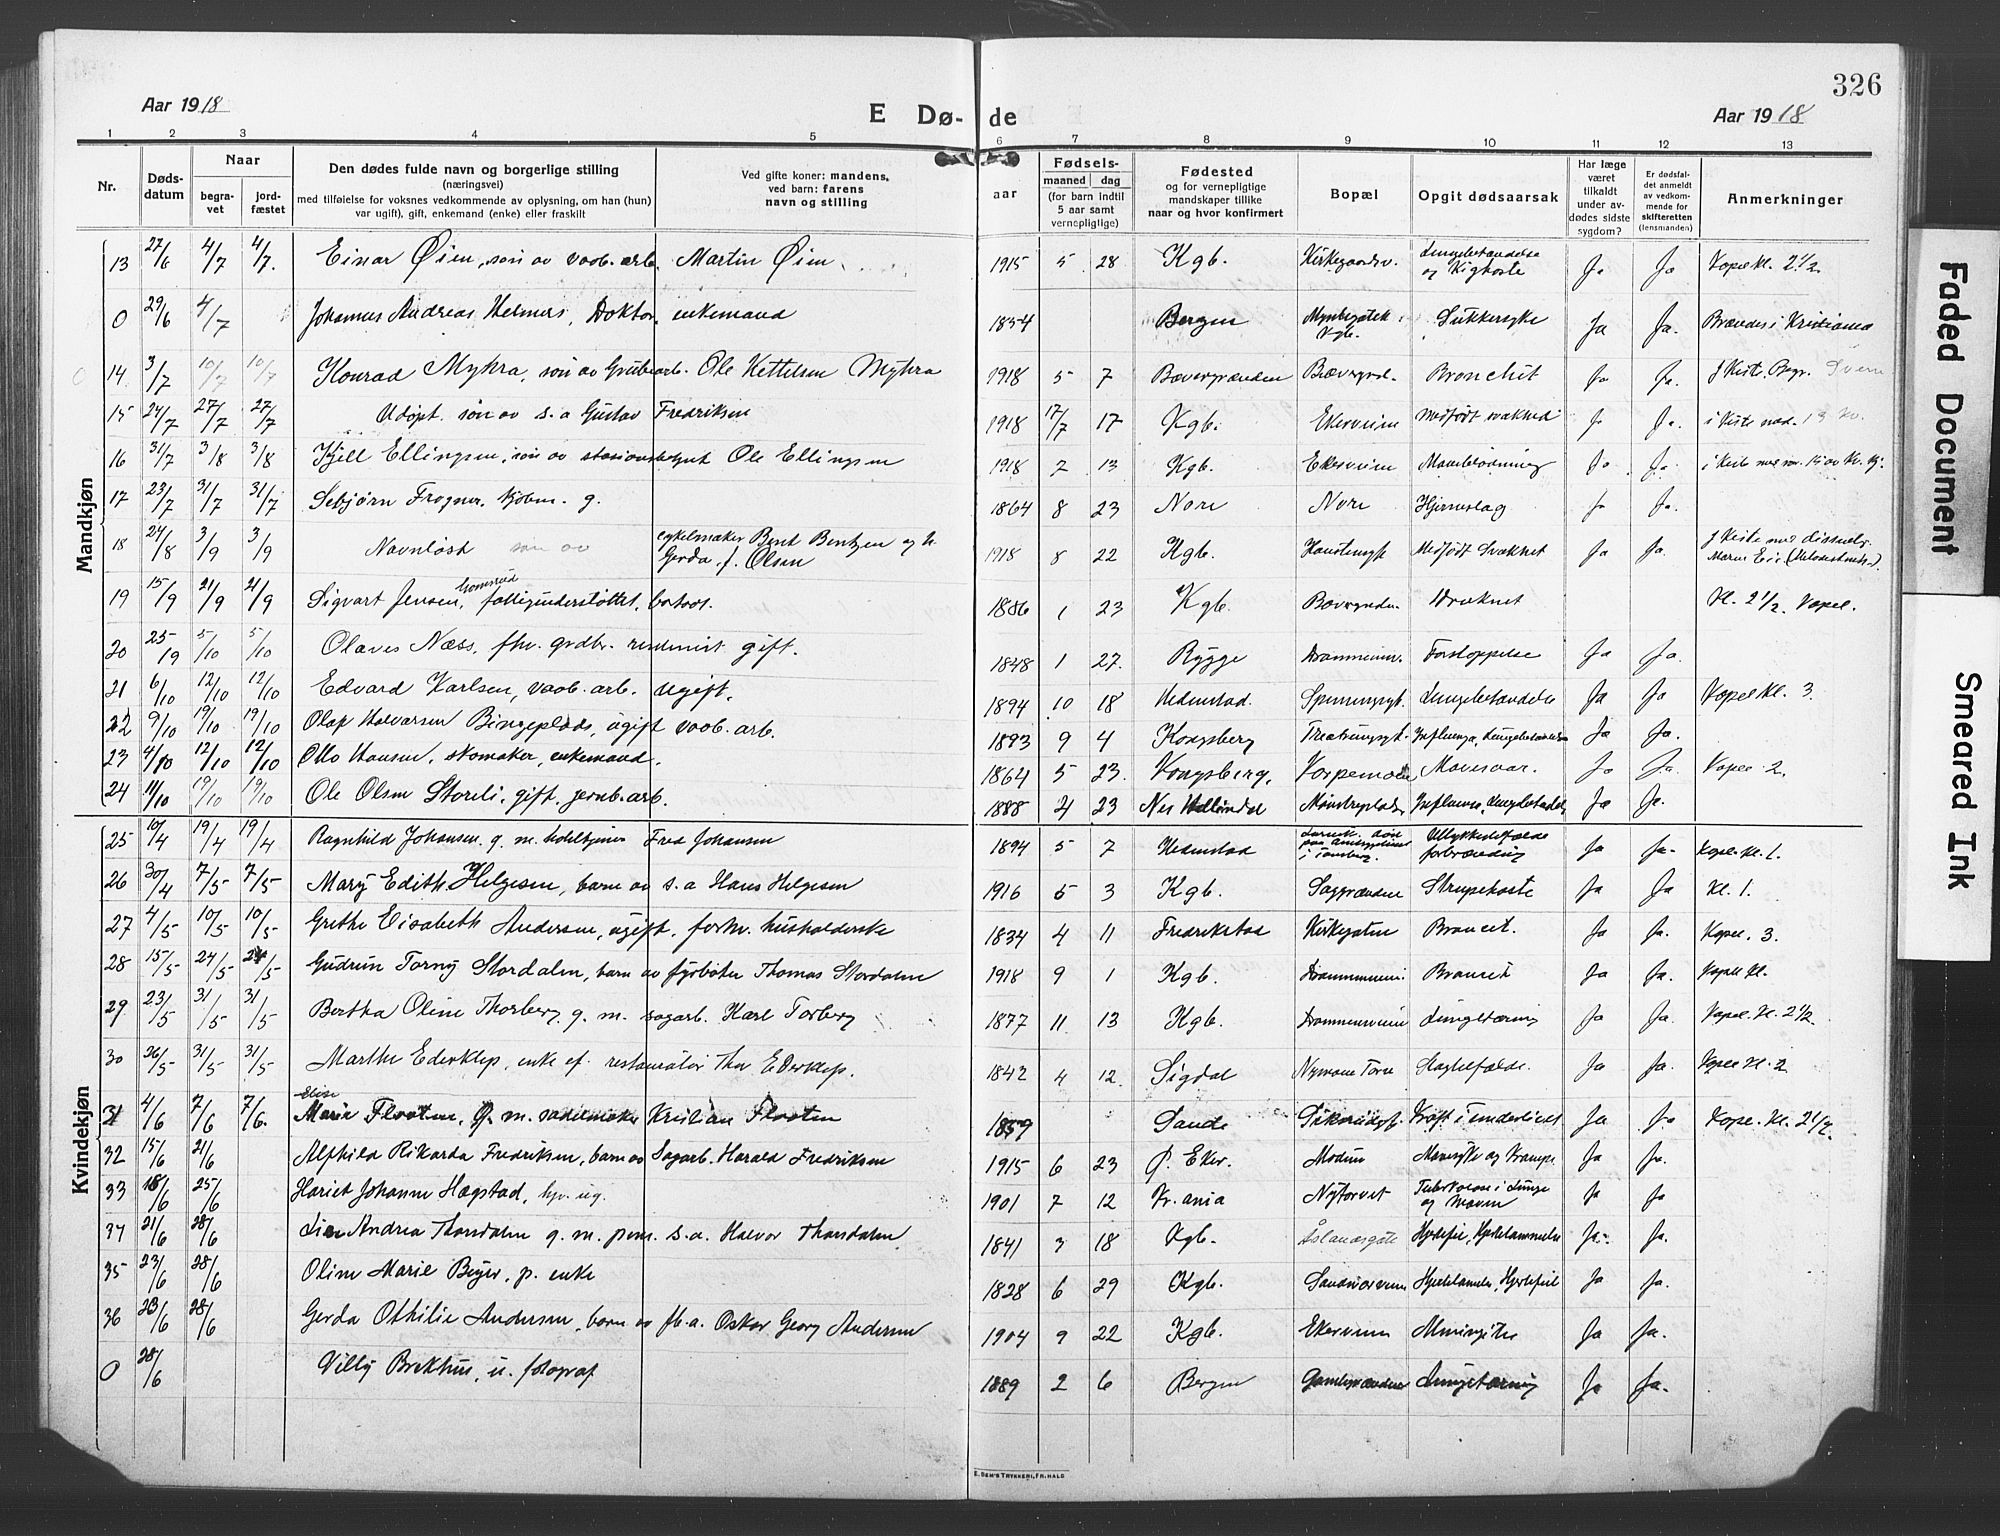 326
Aar 1918
E Dø- de
Aar 1918
1 2 3 4 5 6 7 8 9 10 11 12 13
Nr.
Døds-
datum
Naar
begra-
vet
jord-
fæstet
Den dødes fulde navn og borgerlige stilling
(næringsvei)
med tilføielse for voksnes vedkommende av oplysning, om han (hun)
var ugift), gift, enkemand (enke) eller fraskilt
Ved gifte koner: mandens,
ved barn: farens
navn og stilling
aar
Fødsels-
maaned dag
(for barn indtil
5 aar samt
vernepligtige)
Fødested
og for vernepligtige
mandskaper tillike
naar og hvor konfirmert
Bopæl
Opgit dødsaarsak
Har læge
været
tilkaldt
under av-
dødes sidste
sygdom?
Er dødsfal-
det anmeldt
av vedkom-
mende for
skifteretten
(lensmanden)
Anmerkninger
Mandkjøn
13 27/6 4/7 4/7. Einar Øien, søn av vaab. arb. Martin Øien 1915 5 28 Kgb. Kirkegaardsv. Lungebetændelse og Kighoste Ja Ja Kapel kl. 2 1/2.
0 29/6 4/7 Johannes Andreas Helmers, Doktor, enkemand 1854 Bergen Kgb. Sukkersyke Ja Ja. Brændes i Kristiania
14 3/7 10/7 10/7 Konrad Myhra, søn av Grubearb. Ole Kettelsen Myhra 1918 5 7 Bævergrænden Bævergrd. Bronchit Ja Ja. J Kiste. Begr.
15 24/7 27/7 27/7 Udøpt søn av s. a Gustav Fredriksen 1918 17/7 17 Kgb. Ekerveien Medfødt svakhed Ja Ja.
16 31/7 3/8 3/8 Kjell Ellingsen, søn av stasionsbetjent Ole Ellingsen 1918 2 13 Kgb. Ekerveien Maveblødning Ja Ja.
17 23/7 31/7 31/7 Sebjørn Frogner, kjøbm. g. 1864 8 23 Nore Nore Hjerneslag Ja Ja.
18 24/8 3/9 3/9 Navnløst søn av cykelmaker Bent Bentzen og h. Gerda, f. Olsen 1918 8 22 Kgb. Medfødt Svakhet Ja Ja.
19 15/9 21/9 21/9 Sigvart Jensen, fattigunderstøttet, 1886 1 23 Kgb. Druknet Kl. 2 1/2 Kapel.
20 25/9 5/10 5/10 Olaves Næss, fhv. grdbr. gift. 1848 1 27. Rygge Drammensv. Forstoppelse Ja Ja.
21 6/10 12/10 12/10 Edvard Karlsen, vaab. arb. ugift. 1894 10 18 Hedenstad. Lungebetændelse Ja Ja Kapel Kl. 3.
22 9/10 19/10 19/10 Olaf Halvorsen Bingeplads, ugift vaab. arb. 1893 9 4 Kongsberg Influenza, Lungebetændelse Ja Ja.
23 4/10 12/10 12/10 Otto Hansen, skomaker, enkemand. 1864 5 23. Kongsberg, Mavesaar. Ja Ja. Kapel 2.
24 11/10 19/10 19/10 Ole Olsen Storeli, gift, jernb. arb. 1888 4 23 Nes Hallingdal Influensa, Lungebetændelse Ja Ja.
Kvindekjøn
25 10/4 19/4 19/4 Ragnhild Johansen, g. m. Fred Johansen 1894 5 7 Hedenstad i Tønsberg. Ulykkestilfælde forbrænding Ja Ja. Kapel. kl. 1.
26 30/4 7/5 7/5 Mary Edith Helgesen, barn av s. a Hans Helgesen 1916 5 3 Kgb. Saggrænden Strupehoste Ja Ja Kl. 1.
27 4/5 10/5 10/5 Grethe Elisabeth Andersen, ugift, forhv. husholderske 1834 4 11 Fredrikstad Kirkegaten Broncit. Ja Ja. Kapel. 3.
28 15/5 24/5 24/5 Gudrun Torny Stordalen, barn av fyrbøter Thomas Stordalen 1918 9 1 Kgb. Drammensveien Broncit Ja Ja. Kapel Kl.
29 23/5 31/5 31/5 Bertha Oline Thorberg, g. m. sagarb. Karl Torberg 1877 11 13 Kgb. Drammensveien Lungetæring Ja Ja. Kapel. kl. 2 1/2.
30 26/5 31/5 31/5 Marthe Ederklep, enke ef. restauratør Thv Ederklep. 1842 4 12. Sigdal Slagtilfælde. Ja Ja. Kapel Kl. 2
31 4/6 7/6 7/6. Elise Marie Flaaten, g. m. sadelmaker Kristian Flaaten 1859 Sande Kræft i underlivet Ja Ja Kapel. Kl. 2 1/2.
32 15/6 21/6 Alfhild Rikarda Fredriksen, barn av Sagarb. Harald Fredriksen 1915 6 23 Ø. Eker. Modum Mavesyke og Krampe Ja Ja.
33 18/6 25/6 Hariet Johanne Hægstad, hp. ug. 1901 7 12 Kr. ania Nytorvet Tuberkulose i Lunge og Maven Ja Ja
34 21/6 28/6 Andrea Thorsdalen g. m. pens. s. a. Halvor Thorsdalen. 1841 3 18 Kgb. Hjertefeil, Hjertelammelse Ja. Ja.
35 23/6 28/6 Oline Marie Beyer, p. enke 1828 6 29 Kgb. Sandsværveien Hjertelamelse, Hjertefeil Ja Ja.
36 23/6 28/6 Gerda Othilie Andersen, barn av fb. a. Oskar Georg Andersen 1904 9 22 Kgb. Ekerveien Meningitis Ja Ja.
0 28/6 Villy Brekhus, u. fotograf 1889 2 6 Bergen Gamlegrænden Lungetæring Ja Ja.
E. SEM'S TRYKKERI, FR. HALD
Faded Document
Smeared Ink